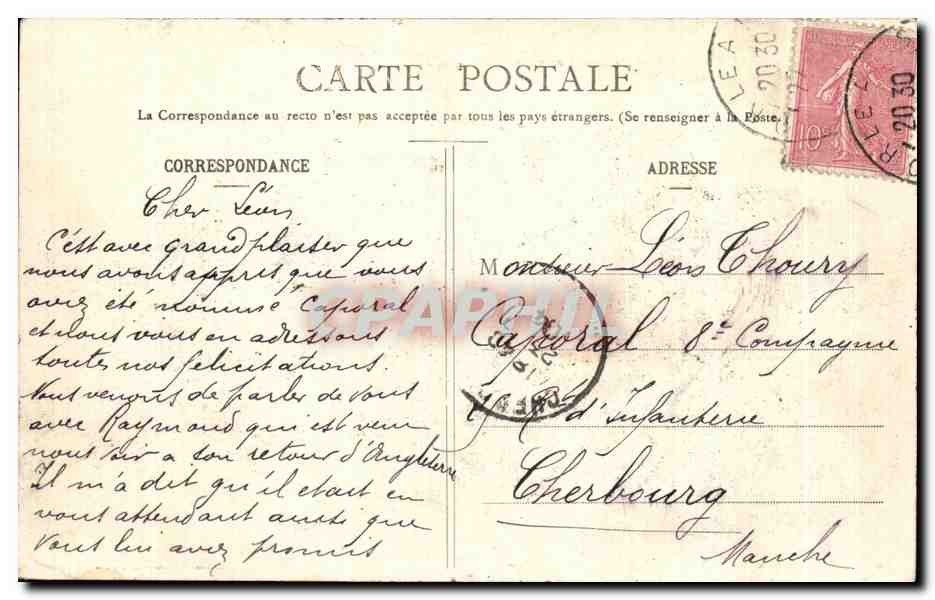 CARTE POSTALE
La Correspondance au recto n'est pas acceptée par tous les pays étrangers. (Se renseigner à la Poste.
CORRESPONDANCE
Cher Léon
C'est avec grand plaisir que
nous avons appris que vous
aviez été nommé Caporal
et nous vous en adressons
toutes nos felicitations.
Nous venons de parler de vous
avec Raymond qui est venu
nous voir a son retour d'Angleterre
Il m'a dit qu'il etait en
vous attendant ainsi que
vous lui avez promis
ADRESSE
Monsieur Léon Thoury
Caporal 8e Compagnie
d'Infanterie
Cherbourg
Manche
10c
20 30
20 30
CPAPHIL